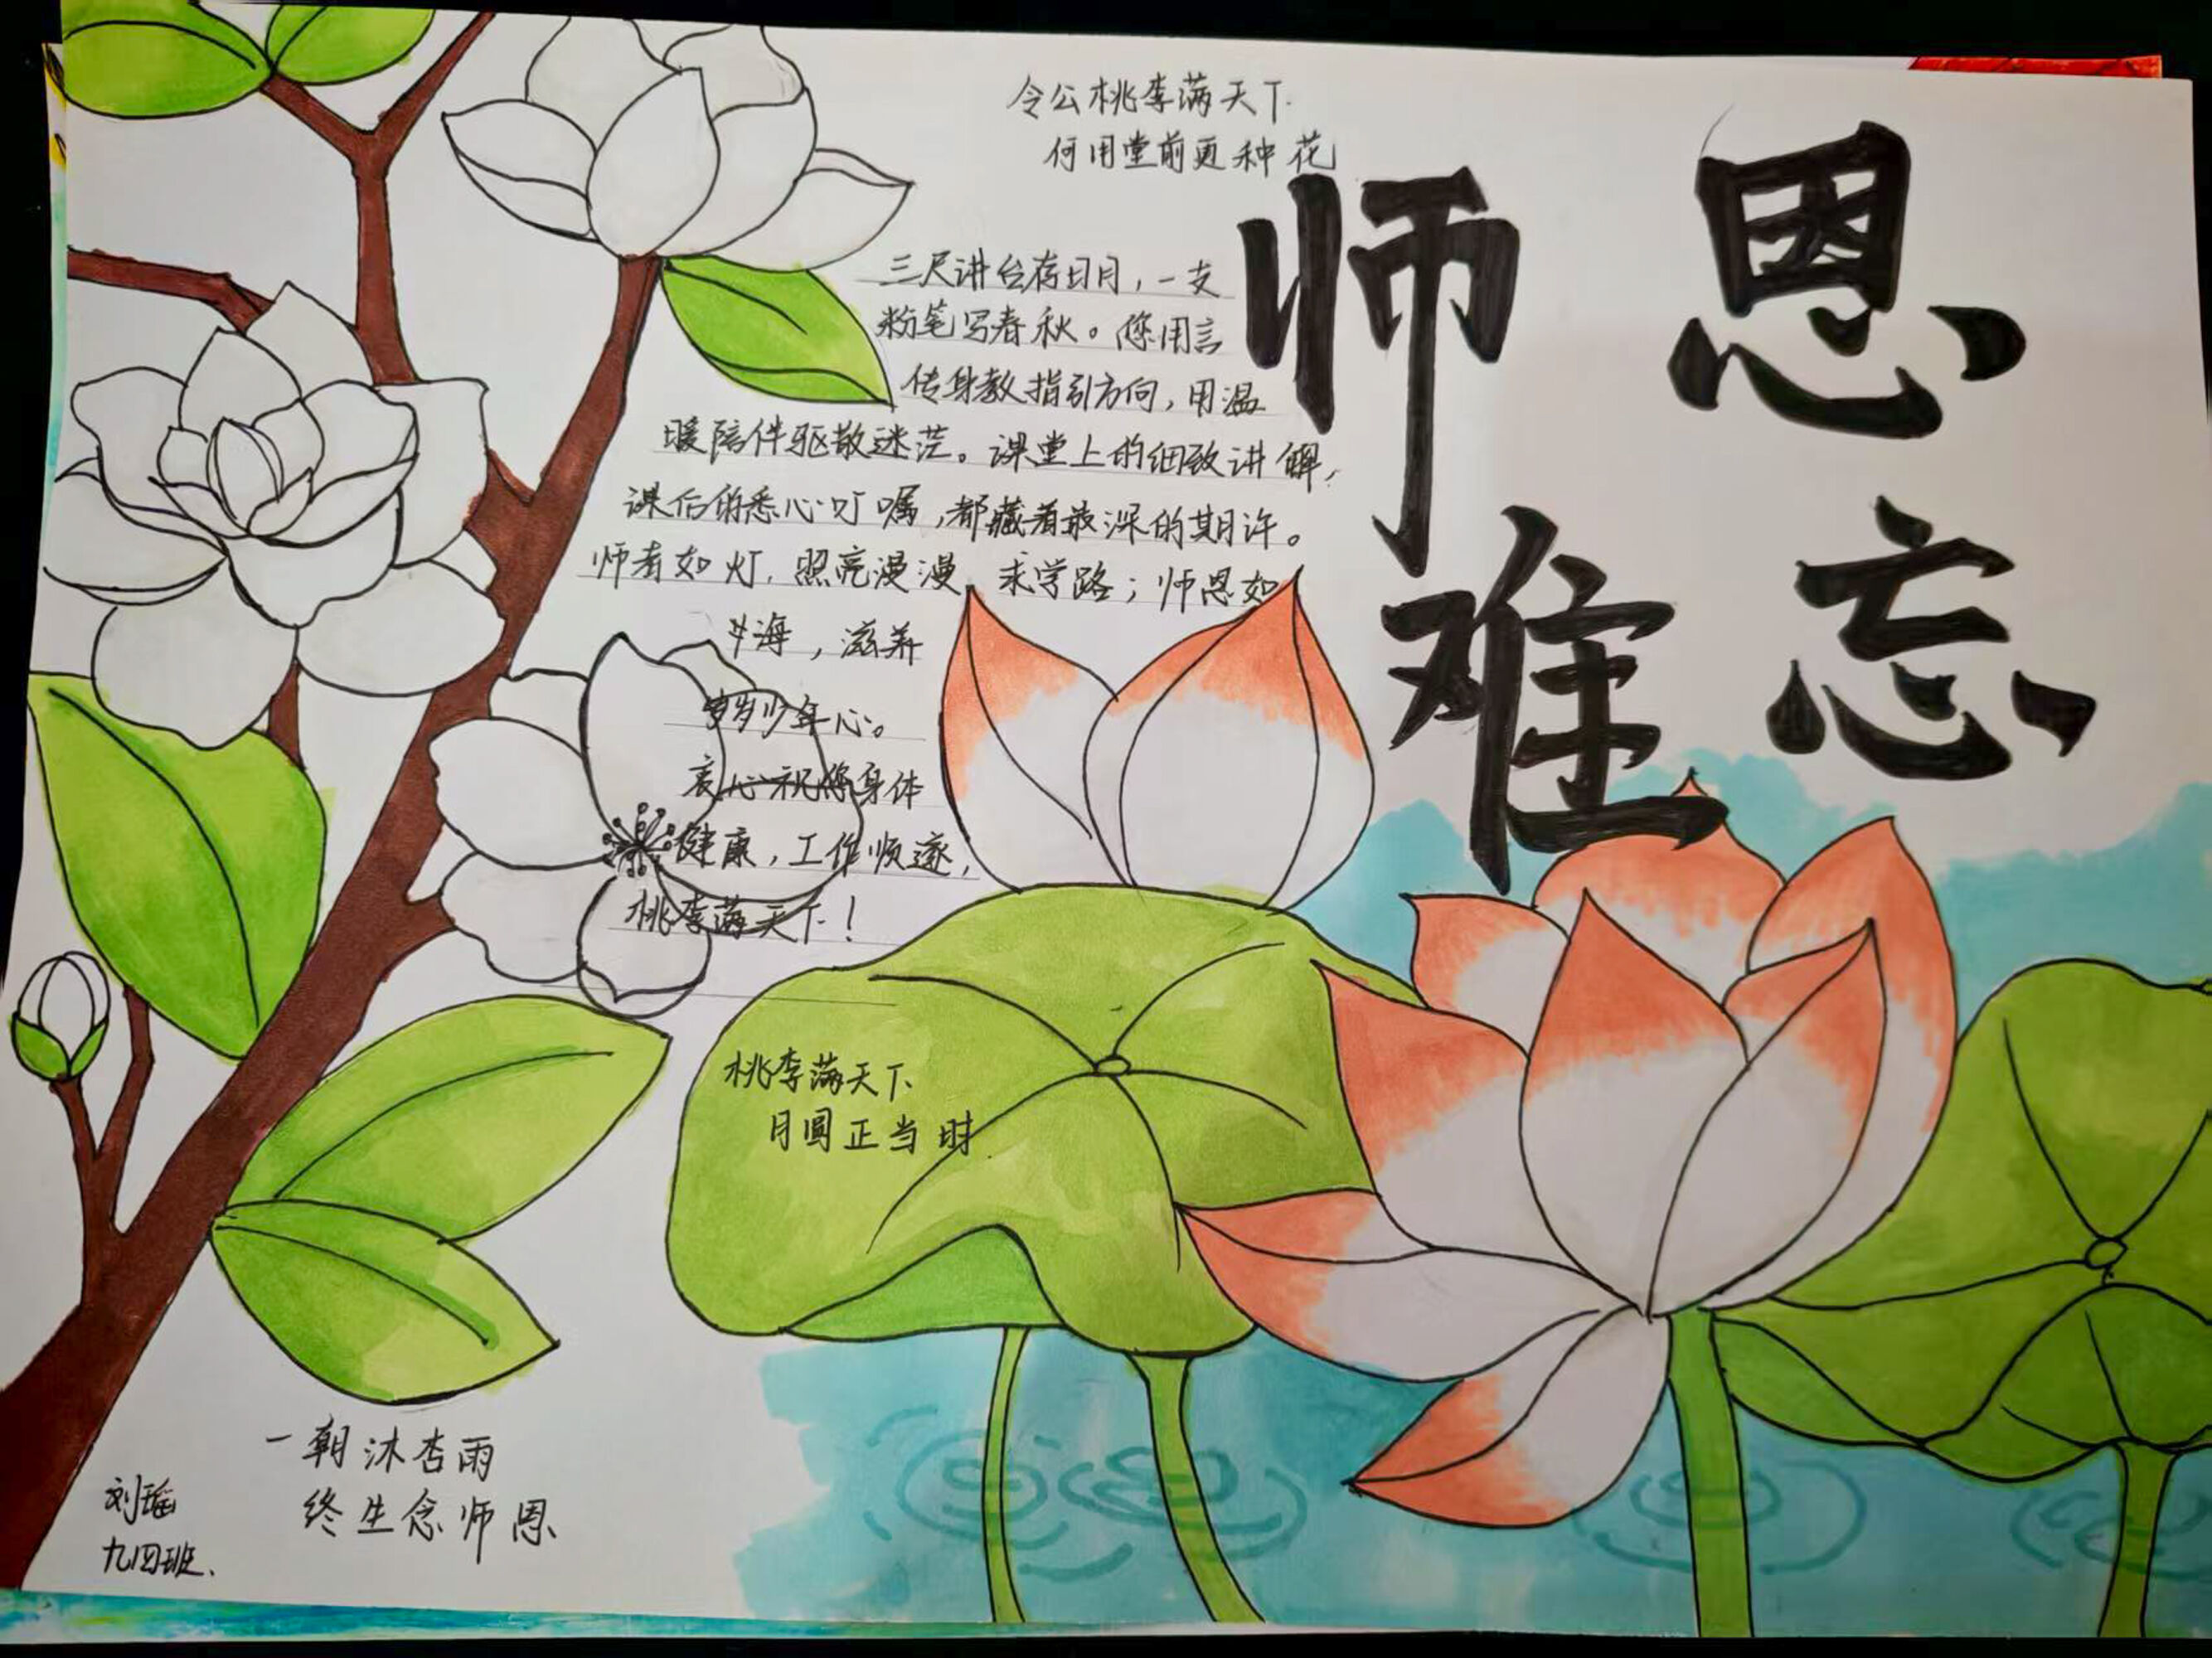 令公桃李满天下
何用堂前更种花
师恩
难忘
三尺讲台存日月，一支
粉笔写春秋。您用言
传身教指引方向，用温
暖陪伴驱散迷茫。课堂上的细致讲解，
课后的悉心叮嘱，都藏着最深的期许。
师者如灯，照亮漫漫求学路；师恩如
海，滋养
岁岁少年心。
衷心祝您身体
健康，工作顺遂，
桃李满天下！
桃李满天下
月圆正当时
一朝沐杏雨
终生念师恩
刘瑶
九四班.